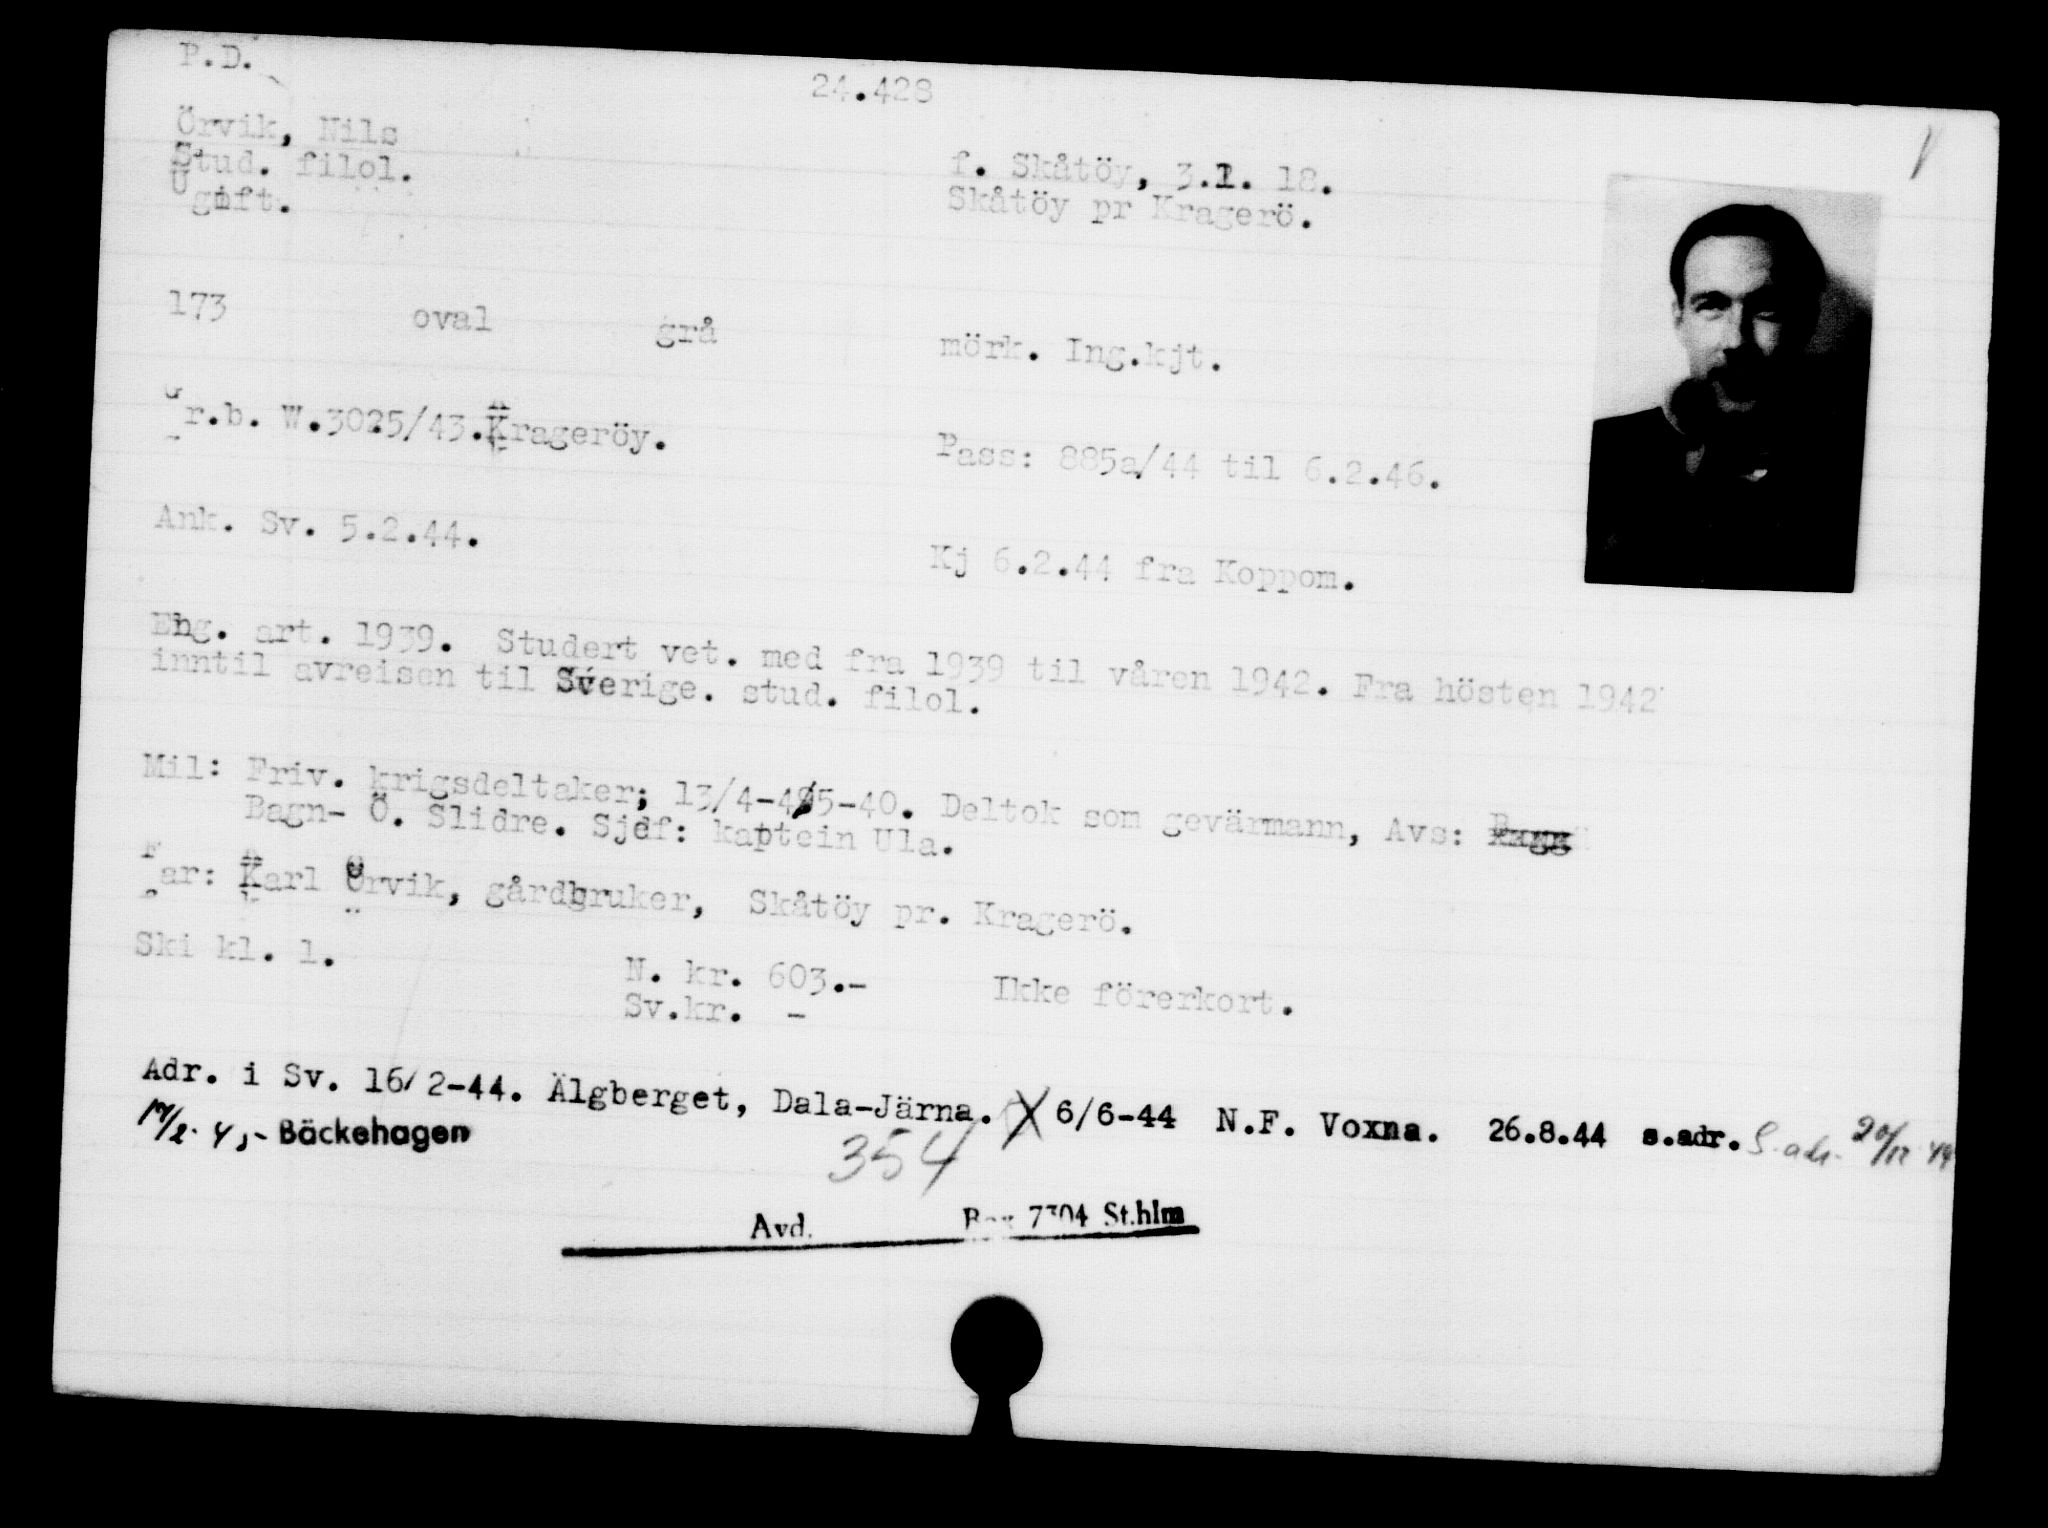 P.D.
24.428
Örvik, Nils
Stud. filol.
Ugift.
f. Skåtöy, 3.1. 18.
Skåtöy pr Kragerö.
173 oval grå mörk. Ing.kjt.
Gr.b. W.3025/43.Krageröy.
Pass: 885a/44 til 6.2.46.
Ank. Sv. 5.2.44.
Kj 6.2.44 fra Koppom.
Eng. art. 1939. Studert vet. med fra 1939 til våren 1942. Fra hösten 1942
inntil avreisen til Sverige. stud. filol.
Mil: Friv. krigsdeltaker; 13/4-4/5-40. Deltok som gevärmann, Avs:
Bagn- Ö. Slidre. Sjef: kaptein Ula.
Far: Karl Örvik, gårdbruker, Skåtöy pr. Kragerö.
Ski kl. 1.
N. kr. 603.-
Sv.kr. -
Ikke förerkort.
Adr. i Sv. 16/2-44. Älgberget, Dala-Järna. X 6/6-44 N.F. Voxna. 26.8.44 s.adr. S.adr. 20/12 44
Bäckehagen
354
Avd. Box 7304 St.hlm